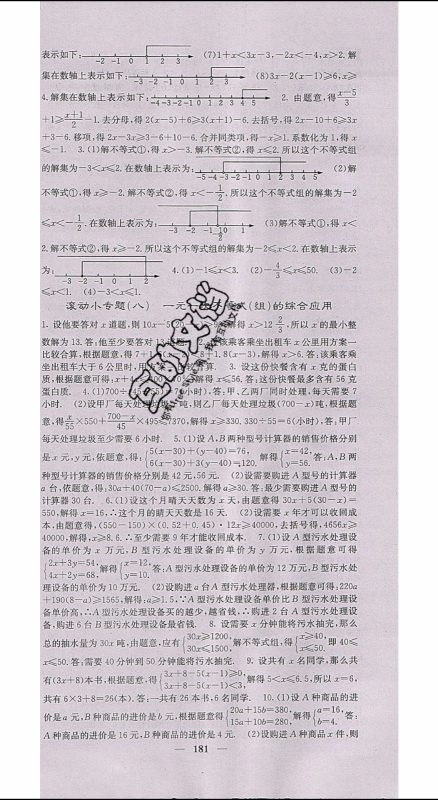 表示如下: -2 -1 0 1 2 3 (7)1+x<3x-3,-2x<-4,x>2.解
集在数轴上表示如下: -3 -2 -1 0 1 2 3 (8)3x-2(x-1)≥6,x≥
4.解集在数轴上表示如下: -4 -3 -2 -1 0 1 2 3 4 5 2. 由题意,得 x-5/3
+1≥ x+1/2 -1.去分母,得 2(x-5)+6≥3(x+1)-6.去括号,得 2x-10+6≥3x
+3-6.移项,得 2x-3x≥3-6+10-6.合并同类项,得-x≥1.系数化为 1,得 x
≤-1. 3.(1)解不等式①,得 x>-3.解不等式②,得 x≤2.所以这个不等式组
的解集为-3<x≤2.在数轴上表示为: -5 -4 -3 -2 -1 0 1 2 3 4 5 (2)解
不等式①,得 x≥-2.解不等式②,得 x<-1/2.所以这个不等式组的解集为-2
≤x<-1/2.在数轴上表示为: -3 -2 -1 0 1 2 (3)解不等式①,得 x<
2.解不等式②,得 x≥-2.所以这个不等式组的解集为-2≤x<2.在数轴上表示
为: -3 -2 -1 0 1 2 4.(1)-1≤x<3. (2)-4/3≤x≤50. (3)-2
≤x<1. (4)-3<x≤1.
滚动小专题(八) 一元 (组)的综合应用
1. 设他要答对 x 道题,则 10x-5(20 解得 x>12 2/3 ,所以 x 的最小整
数解为 13.答:他至少要答对 13 该乘客乘坐出租车 x 公里用方案一
比较合算,根据题意,得 7+1 8+1.8(x-3),解得 x>6.答:该乘客乘
坐出租车大于 6 公里时,用方案一 算. 3. 设这份快餐含有 x 克的蛋白
质,根据题意可得,x+4x 解得 x≤56.答:这份快餐最多含有 56 克
蛋白质. 4.(1)700÷ (小时),答:甲、乙两厂同时处理,每天需要 7
小时. (2)设甲厂每天处理垃圾 x 吨,则乙厂每天处理垃圾(700-x)吨,根据题
意,得 x/55 ×550+ 700-x/45 ×495≤7370,解得 x≥330.330÷55=6(小时),答:甲厂
每天处理垃圾至少需要 6 小时. 5.(1)设 A,B 两种型号计算器的销售价格分别
是 x 元,y 元,依题意,得:{5(x-30)+(y-40)=76, 6(x-30)+3(y-40)=120. 解得{x=42, y=56. 答:A,B 两
种型号计算器的销售价格分别是 42 元,56 元. (2)设需要购进 A 型号的计算器
a 台,依题意,得,30a+40(70-a)≤2500.解得 a≥30.答:最少需要购进 A 型号的
计算器 30 台. 6.(1)设这个月晴天天数为 x 天,由题意得 30x+5(30-x)=
550,解得 x=16,∴这个月的晴天天数是 16 天. (2)设需要 x 年才可以收回成
本,由题意得,(550-150)×(0.52+0.45)·12x≥40000,去括号得,4656x≥
40000,解得,x≥8.6.∴至少需要 9 年才能收回成本. 7.(1)设 A 型污水处理设
备的单价为 x 万元,B 型污水处理设备的单价为 y 万元,根据题意可得
{2x+3y=54, 4x+2y=68, 解得{x=12, y=10. 答:A 型污水处理设备的单价为 12 万元,B 型污水处
理设备的单价为 10 万元. (2)设购进 a 台 A 型污水处理器,根据题意可得,220a
+190(8-a)≥1565,解得:a≥1.5.∵A 型污水处理设备单价比 B 型污水处理设
备单价高,∴A 型污水处理设备买的越少,越省钱,∴购进 2 台 A 型污水处理设
备,购进 6 台 B 型污水处理设备最省钱. 8. 设需要 x 分钟能将污水抽完,那么
总的抽水量为 30x 吨,由题意,应有{30x≥1200, 30x≤1500, 解不等式组,得{x≥40, x≤50. 即 40≤
x≤50.答:需要 40 分钟到 50 分钟能将污水抽完. 9. 设共有 x 名同学,那么共
有(3x+8)本书,根据题意,得{3x+8-5(x-1)≥0, 3x+8-5(x-1)<3, 解得 5<x≤6.5,所以 x=6,
共有 6×3+8=26(本).答:一共有 26 本书,6 名同学. 10.(1)设 A 种商品的进
价是 a 元,B 种商品的进价是 b 元,根据题意得{20a+15b=380, 15a+10b=280, 解得{a=16, b=4. 答:
A 种商品的进价是 16 元,B 种商品的进价是 4 元. (2)设购进 A 种商品 x 件,则
— 181 —